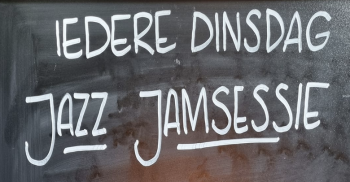 IEDERE DINSDAG
JAZZ JAMSESSIE